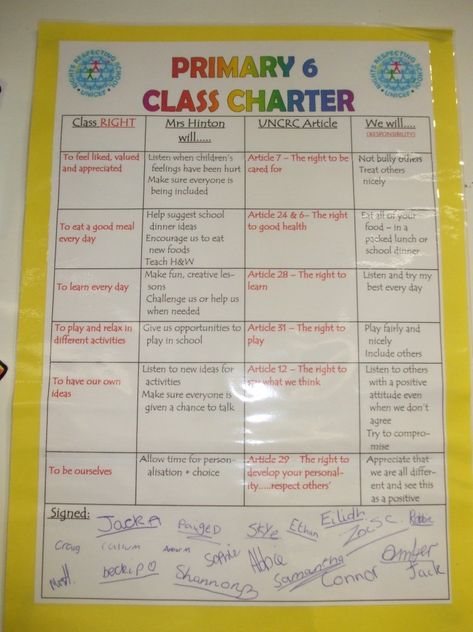 RIGHTS RESPECTING SCHOOL
UNICEF
RIGHTS RESPECTING SCHOOL
UNICEF
PRIMARY 6
CLASS CHARTER
Class RIGHT
Mrs Hinton
will.....
UNCRC Article
We will....
(RESPONSIBILITY)
To feel liked, valued
and appreciated
Listen when children's
feelings have been hurt
Make sure everyone is
being included
Article 7 – The right to be
cared for
Not bully others
Treat others
nicely
To eat a good meal
every day
Help suggest school
dinner ideas
Encourage us to eat
new foods
Teach H&W
Article 24 & 6– The right
to good health
Eat all of your
food – in a
packed lunch or
school dinner
To learn every day
Make fun, creative les-
sons
Challenge us or help us
when needed
Article 28 – The right to
learn
Listen and try my
best every day
To play and relax in
different activities
Give us opportunities to
play in school
Article 31 – The right to
play
Play fairly and
nicely
Include others
To have our own
ideas
Listen to new ideas for
activities
Make sure everyone is
given a chance to talk
Article 12 – The right to
say what we think
Listen to others
with a positive
attitude even
when we don't
agree
Try to compro-
mise
To be ourselves
Allow time for person-
alisation + choice
Article 29 The right to
develop your personal-
ity.....respect others'
Appreciate that
we are all differ-
ent and see this
as a positive
Signed:
Jack A
Skye
Ethan
Eilidh
Zoe S.C.
Robbie
Craig
Callum
Sophie
Abbie
Samantha
Amber
Shannon B
Connor
Jack